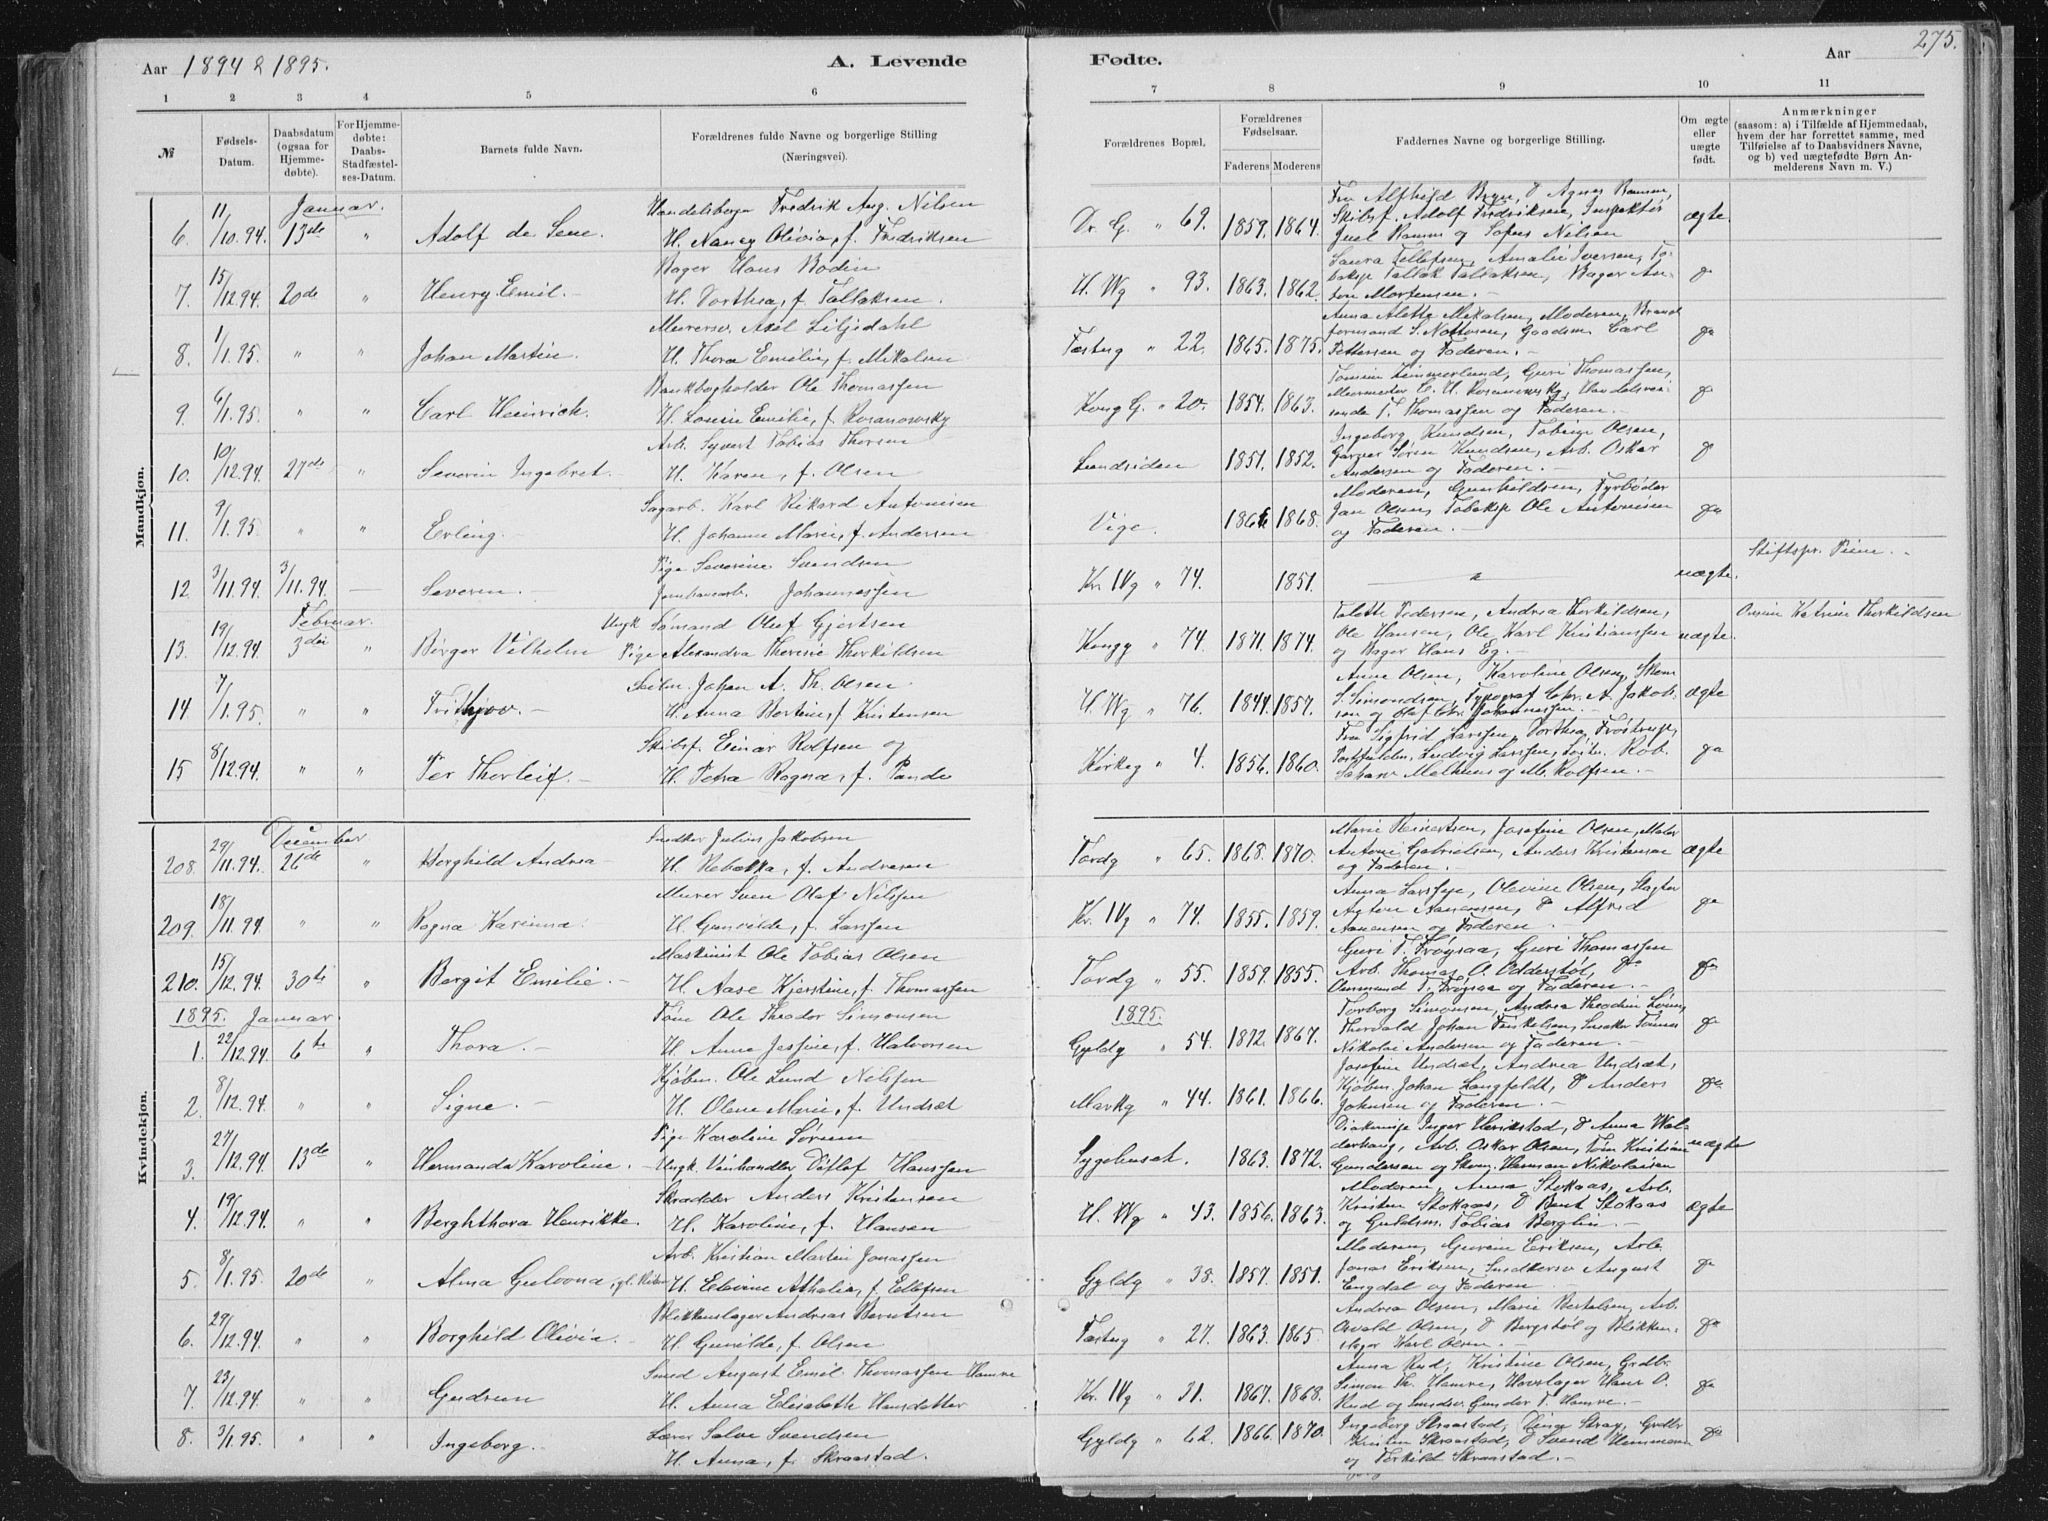 Aar 1894 & 1895. A. Levende Fødte. Aar 275.
1 2 3 4 5 6 7 8 9 10 11
№ Fødsels-Datum. Daabsdatum (ogsaa for Hjemme-døbte). For Hjemme-døbte: Daabs-Stadfæstel-ses-Datum. Barnets fulde Navn. Forældrenes fulde Navne og borgerlige Stilling (Næringsvei). Forældrenes Bopæl. Forældrenes Fødselsaar. Faderens Moderens Faddernes Navne og borgerlige Stilling. Om ægte eller uægte født. Anmærkninger (saasom: a) i Tilfælde af Hjemmedaab, hvem der har forrettet samme, med Tilføielse af to Daabsvidners Navne, og b) ved uægtefødte Børn An-melderens Navn m. V.)
Mandkjøn.
Januar.
6. 11/10.94. 13de " Adolf de Seue. Handelsborger Fredrik Aug. Nilsen
H. Nancy Olivia, f. Fredriksen Dr. G. " 69. 1859. 1864. Fru Alfhild Bryn, Agnes Ramm,
Skibsf. Adolf Fredriksen, Inspektør
Juel Ramm og Sofus Nilsen ægte
7. 15/12.94. 20de " Henry Emil. - Bager Hans Bodin
H. Dorthea, f. Tallaksen. H. Vg " 93. 1863. 1862. Laura Tellefsen, Amalie Iversen, To-
baksp Tallak Tallaksen, Bager An-
ton Mortensen. -
8. 1/1.95. " " Johan Martin. Murersv. Axel Liljedahl
H. Thora Emilie, f. Mikalsen Fæstng " 22. 1865. 1875. Anna Alette Mikalsen, Moderen, Brand
formand S. Nottosen, Gaardsm. Carl
Pettersen og Faderen. -
9. 6/1.95. " " Carl Heinrich. Bankbogholder Ole Thomassen
H. Louise Emilie, f. Rosanowsky Kong G. " 20. 1854. 1863. Tomine Zimmerlund, Guri Thomassen,
Murmester C. H. Rosanowsky, Handelsrei-
sende T. Thomassen og Faderen. -
10. 10/12.94. 27de " Severin Ingebret. Arb. Syvert Tobias Thorsen
H. Karen, f. Olsen Lundsiden 1851. 1852. Ingeborg Knudsen, Tobine Olsen,
Garver Søren Knudsen, Arb. Oskar
Andersen og Faderen. -
11. 9/1.95. " " Erling. - Sagarb. Karl Rikard Antonisen
H. Johanne Marie, f. Andersen Vige. 1866 1868. Moderen, Gunhildsen, Fyrbøder
Jan Olsen, Tobaksp Ole Antonisen
og Faderen. -
12 3/11.94. 3/11.94. — Severin. - Pige Severine Svendsen
Jernbanearb. Johannessen Kr. IVg " 74. 1851. " uægte. Stiftspr. Piene. -
Februar.
13. 19/12.94. 3die " Birger Vilhelm Ungk Sømand Oluf Gjertsen
Pige Alexandra Theresie Thorkildsen Kongg " 74. 1871. 1874. Talette Pedersen, Andrea Thorkildsen,
Ole Hansen, Ole Karl Kristianssen
og Bager Hans Eg. - uægte. Katrine Thorkildsen
14 7/1.95. " " Frithjov. - Seilm. Johan A. Th. Olsen.
H. Anna Bertine, f. Kristensen H. Vg " 76. 1844. 1857. Anne Olsen, Karoline Olsen, Skom
S. Simondsen, Typograf Chr. A. Jakob-
sen og Olaf Chr. Johannessen. - ægte
15 8/12.94. " " Per Thorleif. - Skibsf. Einar Rolfsen og
H. Petra Ragna, f. Pande Kirkeg " 4. 1856. 1860. Fru Sigfrid Larssen, Dorthea Frøstrup,
Postfuldm. Ludvig Larssen, Løitn. Rob.
Melhuus og M. Rolfsen. -
Kvindekjøn.
December
208. 29/11.94. 26de " Borghild Andrea - Snedker Julius Jakobsen
H. Rebekka, f. Andersen Tordg " 65. 1868. 1870. Marie Reinertsen, Josefine Olsen, Maler
Antoni Gabrielsen, Anders Kristensen
og Faderen. ægte
209. 18/11.94. " " Ragna Karinna. Murer Sven Olaf Nilssen
H. Gunvilde, f. Larssen Kr. IVg " 74. 1855. 1859. Anna Larssen, Olevine Olsen, Slagter
Anton Aanensen, Alfred
Aanensen og Faderen. -
210. 15/12.94. 30te " Bergit Emilie. - Maskinist Ole Tobias Olsen
H. Aase Kjerstine, f. Thomassen Tordg " 55. 1859. 1855. Guri T. Frøysaa, Guri Thomassen
Arb. Thomas A. Odderstøl,
Ommund T. Frøysaa og Faderen. -
1895. Januar. 1895.
1. 22/12.94. 6te " Thora. - Tøm Ole Theodor Simonsen
H. Anna Jessine, f. Halvorsen Gyldg " 54. 1872. 1867. Torborg Simonsen, Andrea Theodin
Thorvald Johan Finkelsen, Snedker Tønnes
Nikolai Andersen og Faderen. -
2. 8/12.94. " " Signe. - Kjøbm. Ole Lund Nilssen
H. Olene Marie, f. Undsæt Markg " 44. 1861. 1866. Josefine Undsæt, Andrea Undsæt,
Kjøbm. Johan Langfeldt, Anders
Johnsen og Faderen. -
3. 27/12.94. 13de " Hermanda Karoline. - Pige Karoline Sørum
Ungk. Vinhandler Ditlef Hanssen Sygehuset. 1863. 1872. Diakonisse Inger Henikstad, Anna Wal-
derhaug, Arb. Oskar Olsen, Tøm Kristian
Gundersen og Skom. Herman Nikolaisen uægte
4. 19/12.94. " " Berghthora Henrikke. Skrædder Anders Kristensen
H. Karoline, f. Hansen H. Vg " 43. 1856. 1863. Moderen, Anna Stokaas, Arb.
Kristen Stokaas, Bent Stokaas
og Guldsm. Tobias Berglin. - ægte
5. 8/1.95. 20de " Alma Gulovna, Arb. Kristian Martin Jonassen
H. Elevine Athalia, f. Ellefsen Gyldg " 38. 1857. 1851. Moderen, Gurine Eriksen, Arb.
Jonas Eriksen, Snedkersv August
Engdal og Faderen. -
6. 29/12.94. " " Borghild Olivia - Blikkenslager Andreas Berntsen
H. Gunvilde, f. Olsen Fæstng " 27. 1863. 1865. Andrea Olsen, Marie Bertelsen, Arb.
Osvald Olsen, Bergstøl og Blikken-
slager Karl Olsen. -
7. 23/12.94 " " Gudrun Smed August Emil Thomassen Hamre
H. Anna Elisabeth Hansdatter Kr. IVg " 31. 1867. 1868. Anna Rud, Kristine Olsen, Grdbr.
Simon Th. Hamre, Hovslager Hans O.
Rud og Smedsv. Gunder T. Hamre. -
8. 3/1.95. " " Ingeborg. Lærer Salve Svendsen
H. Anna, f. Skraastad. Gyldg " 62. 1866. 1870. Ingeborg Skraastad, Dina Stray, Grdbr
Kristen Skraastad, Svend Hemmern
og Torkild Skraastad. -